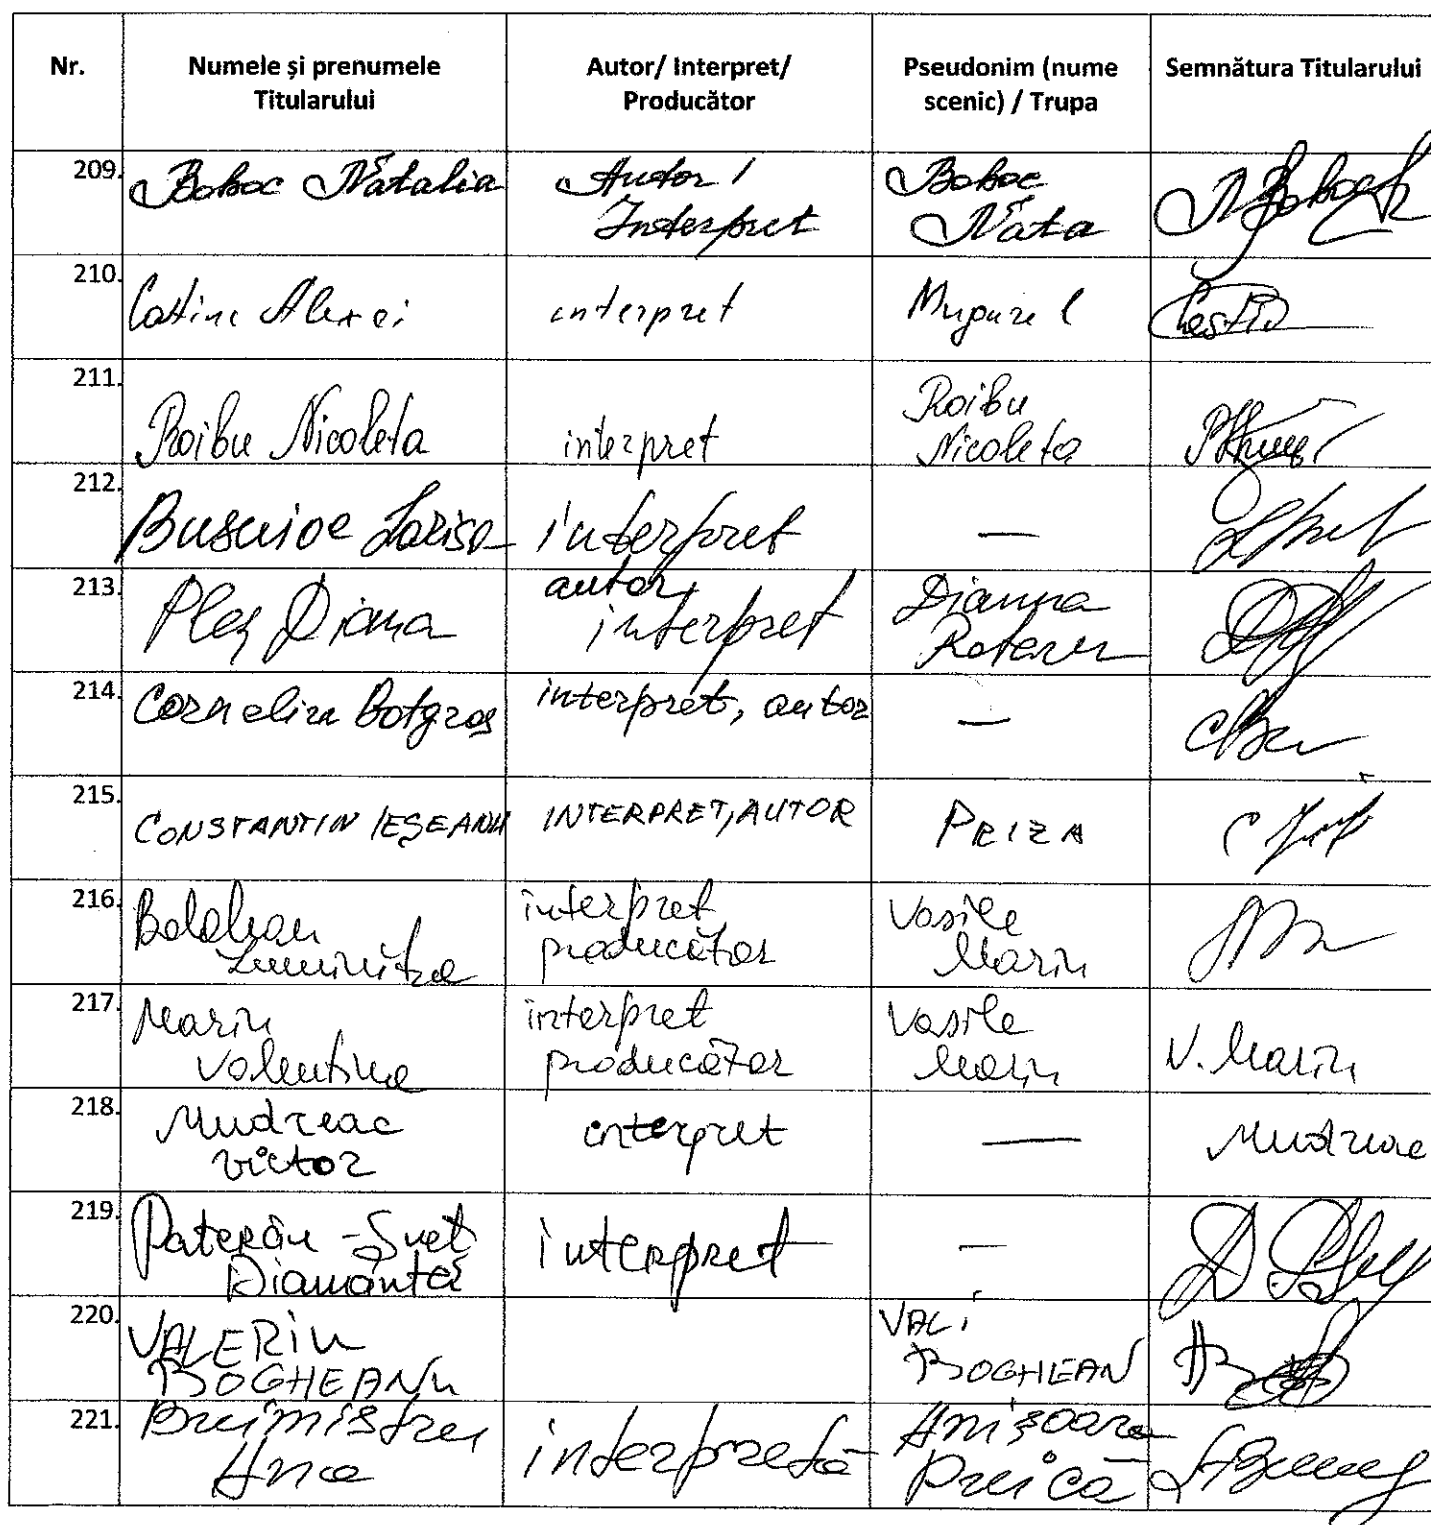 Nr. Numele și prenumele Titularului Autor/ Interpret/ Producător Pseudonim (nume scenic) / Trupa Semnătura Titularului
209. Boboc Natalia Autor / Interpret Boboc Nata
210. Alexei interpret Mugurel
211. Roibu Nicoleta interpret Roibu Nicoleta
212. Busuioc Larisa interpret —
213. Diana autor, interpret Dianna Rotaru
214. Corneliu Botgros interpret, autor —
215. CONSTANTIN IEȘEANU INTERPRET, AUTOR PRIZA
216. Luminitza interpret producător Vasile Marin
217. Marin Valentina interpret producător Vasile Marin V. Marin
218. Mudreac Victor interpret — Mudreac
219. Diamanta interpret —
220. VALERIU BOGHEANU VALI BOGHEAN
221. Ana interpretă Anișoara